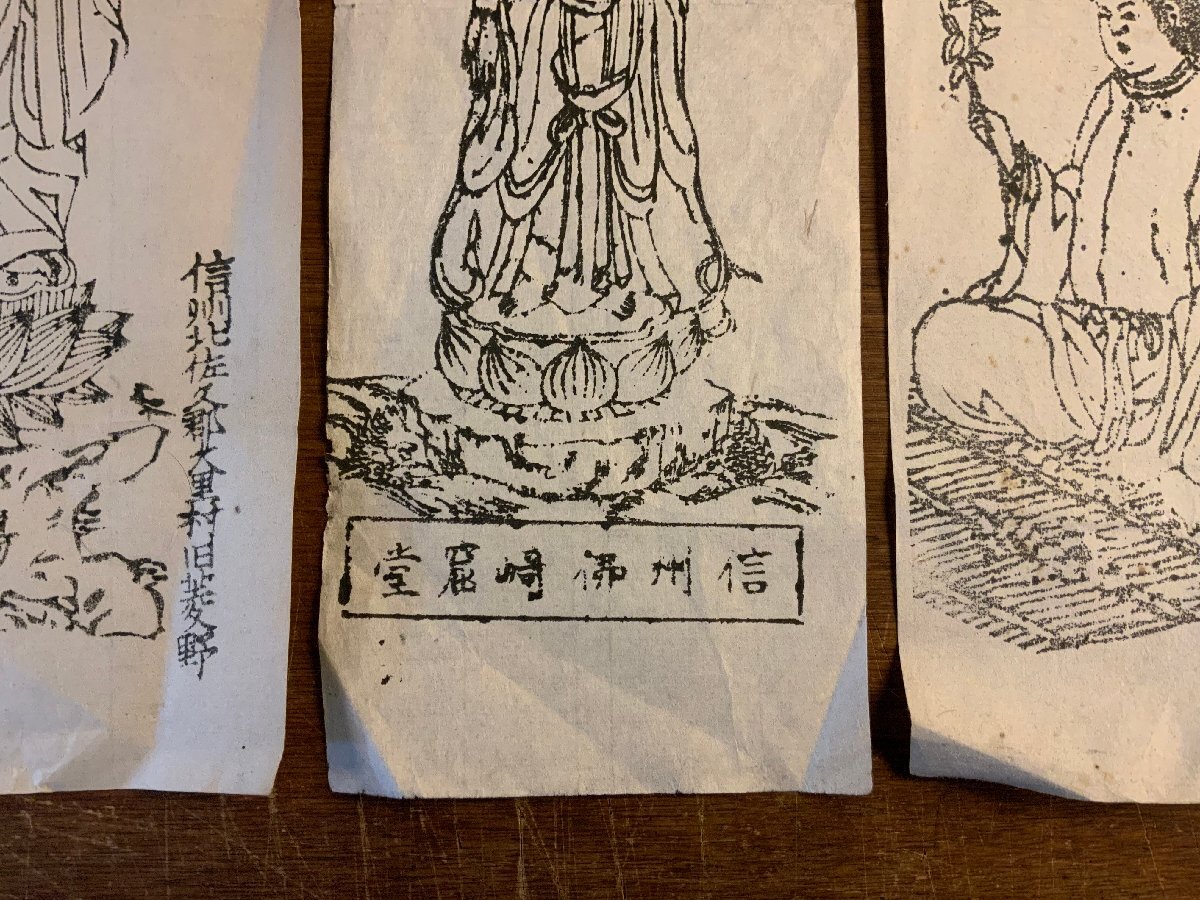 信州北佐久郡大里村旧菱野
信州佛﨑窟堂